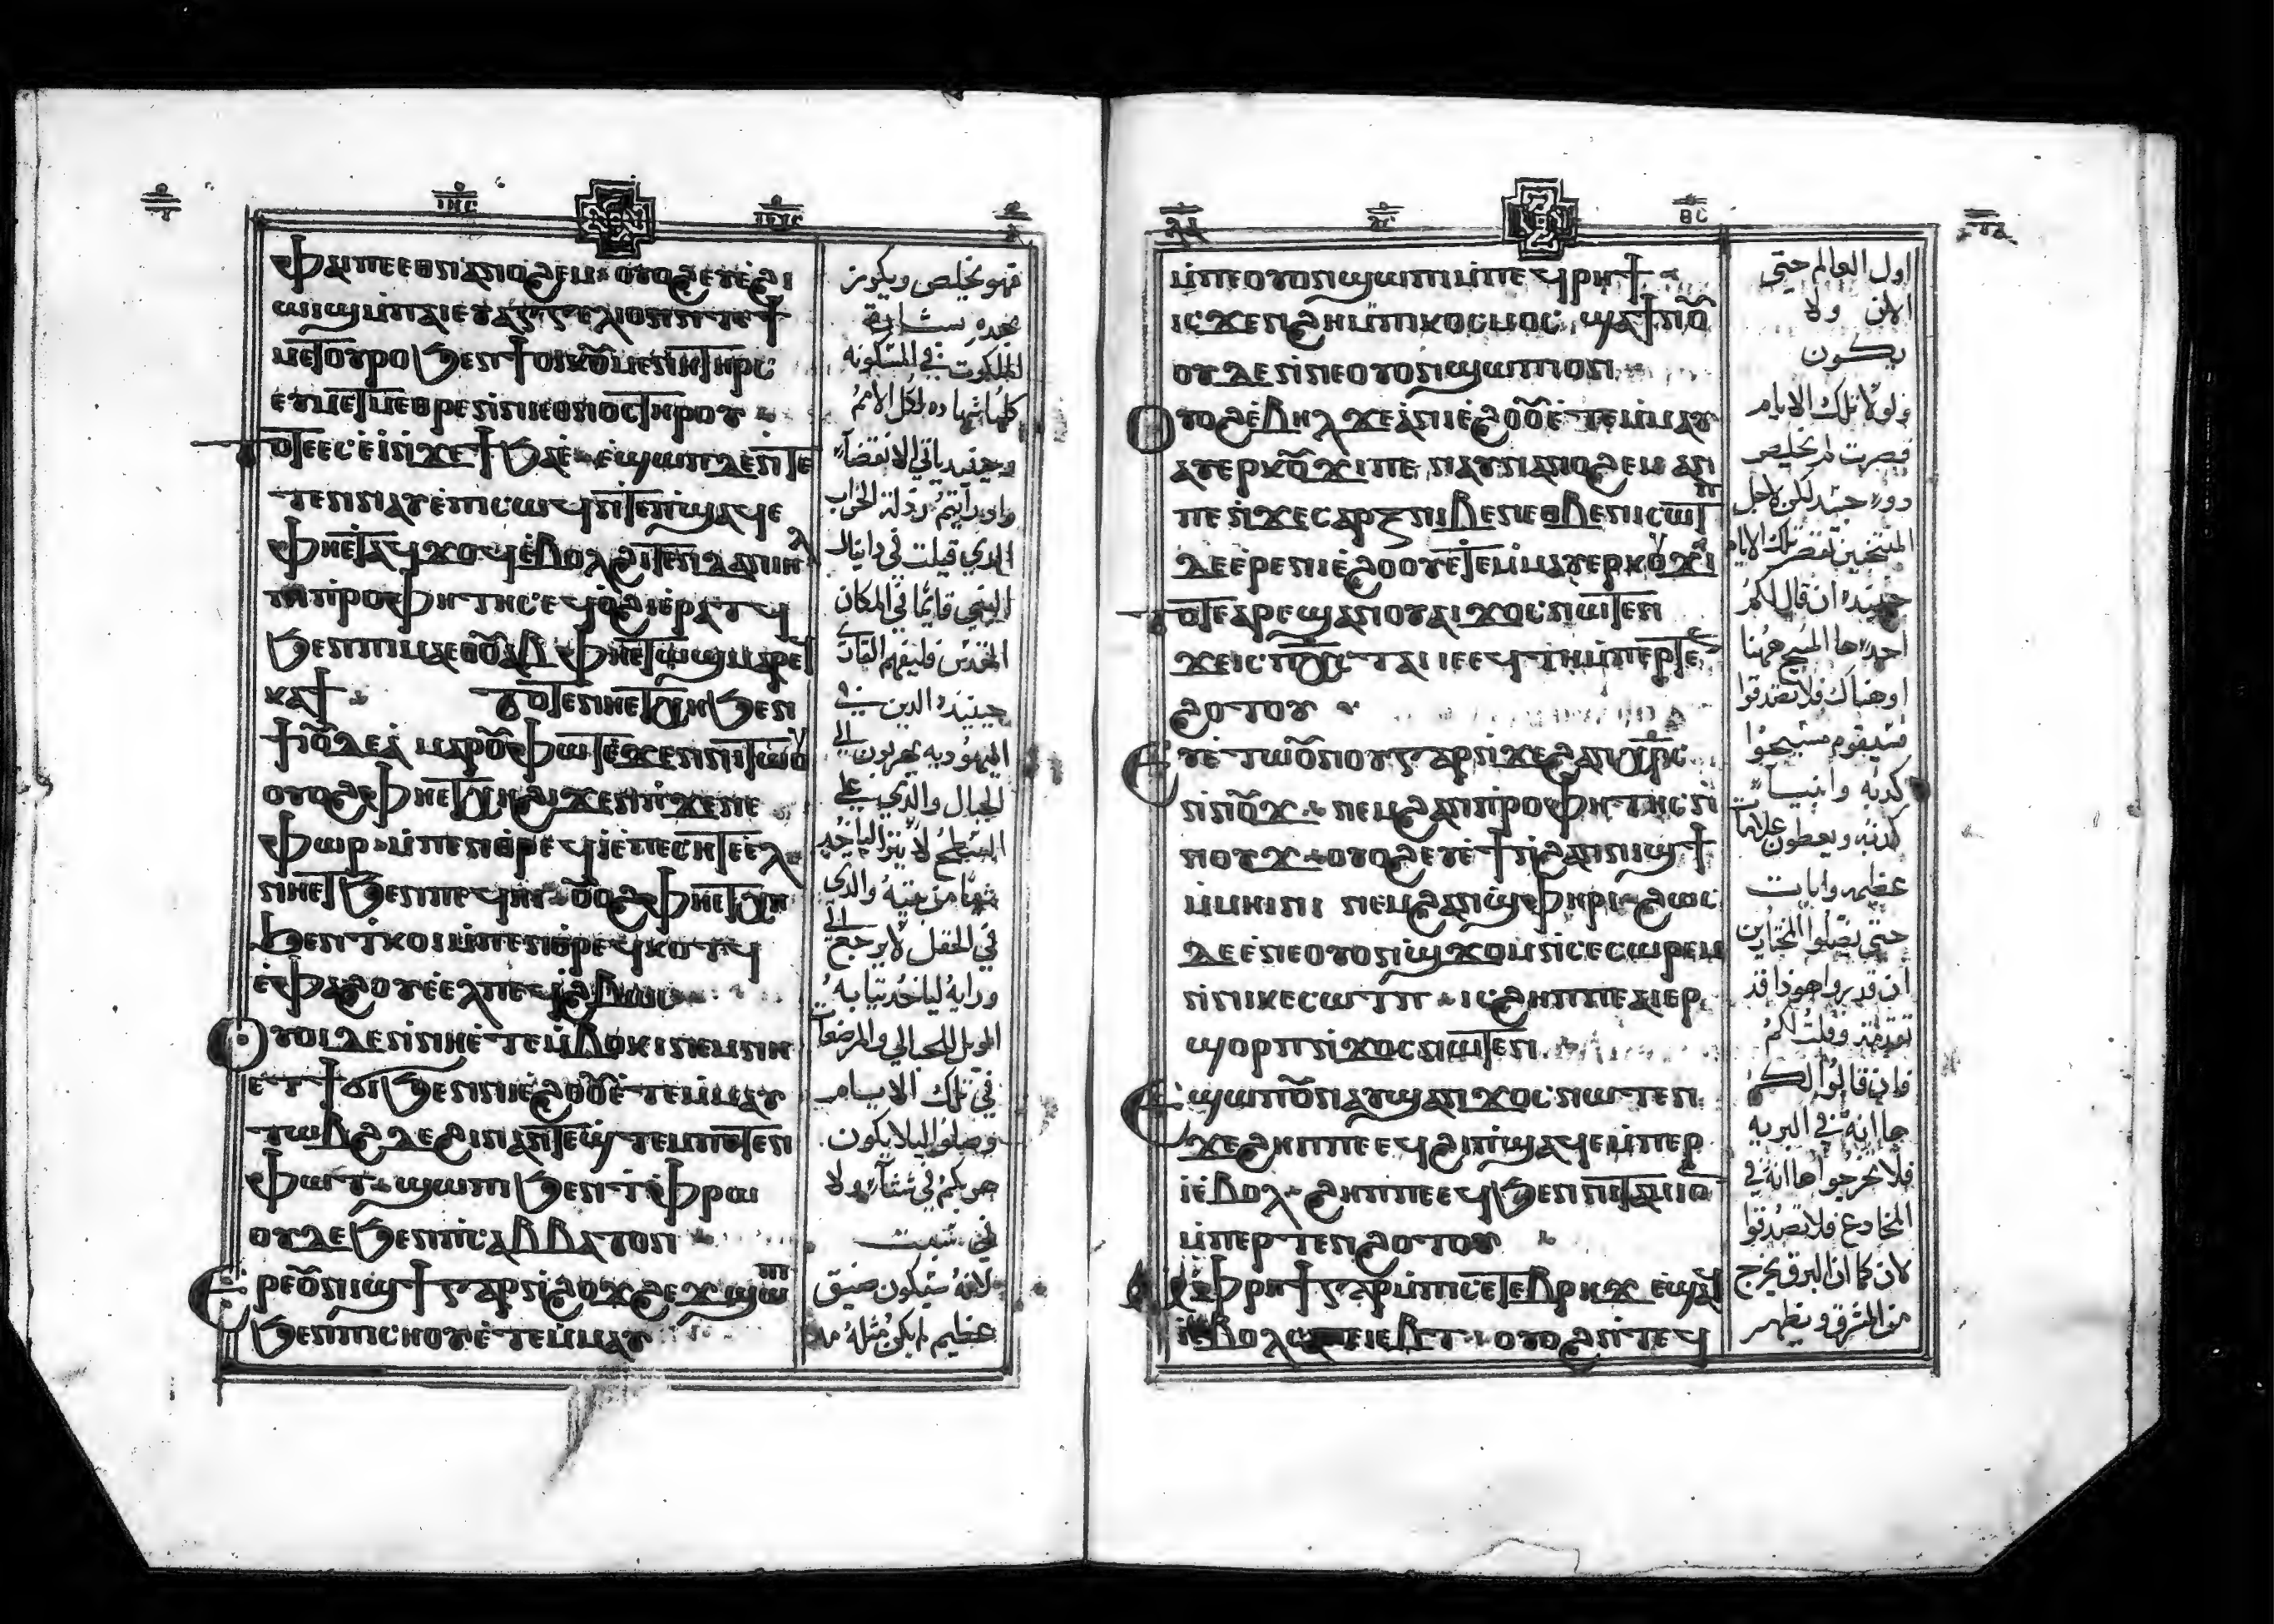 ⲫⲁⲓⲡⲉⲉⲑⲛⲁⲛⲟϩⲉⲙ ⲟⲩⲟϩⲉⲩⲉϩⲓ
ⲱⲓϣⲙⲡⲁⲓⲉⲩⲁⲅⲅⲉⲗⲓⲟⲛⲛⲧⲉϯ
ⲙⲉⲧⲟⲩⲣⲟϧⲉⲛϯⲟⲓⲕⲟⲩⲙⲉⲛⲏⲧⲏⲣⲥ
ⲉⲩⲙⲉⲧⲙⲉⲑⲣⲉⲛⲛⲓⲉⲑⲛⲟⲥⲧⲏⲣⲟⲩ
ⲧⲟⲧⲉⲉⲥⲉⲓⲛϫⲉϯϧⲁⲉ ⲉϣⲱⲡⲇⲉⲛⲧⲉ
ⲧⲉⲛⲛⲁⲩⲉⲡⲓⲥⲱϥⲛⲧⲉⲡϣⲁϥⲉ
ⲫⲏⲉⲧⲁϥϫⲟϥⲉⲃⲟⲗϩⲓⲧⲉⲛⲇⲁⲛⲓⲏⲗ
ⲡⲓⲡⲣⲟⲫⲏⲧⲏⲥⲉϥⲟϩⲓⲉⲣⲁⲧϥ
ϧⲉⲛⲡⲓⲙⲁⲉⲑⲟⲩⲁⲃ ⲫⲏⲉⲧⲱϣⲙⲁⲣⲉϥ
ⲕⲁϯ ⲧⲟⲧⲉⲛⲏⲉⲧⲭⲏϧⲉⲛ
ϯⲓⲟⲩⲇⲉⲁ ⲙⲁⲣⲟⲩⲫⲱⲧⲉϫⲉⲛⲛⲓⲧⲱⲟⲩ
ⲟⲩⲟϩⲫⲏⲉⲧⲭⲏϩⲓϫⲉⲛⲡϫⲉⲛⲉ
ⲫⲱⲣ ⲙⲡⲉⲛⲑⲣⲉϥⲓⲉⲡⲉⲥⲏⲧⲉⲉⲗ
ⲛⲏⲉⲧϧⲉⲛⲡⲉϥⲏⲓ ⲟⲩⲟϩⲫⲏⲉⲧⲭⲏ
ϧⲉⲛⲧⲕⲟⲓⲙⲡⲉⲛⲑⲣⲉϥⲕⲟⲧϥ
ⲉⲫⲁϩⲟⲩⲉⲉⲗⲡⲉϥϩⲃⲱⲥ
ⲟⲩⲟⲓⲇⲉⲛⲛⲏⲉⲧⲉⲙⲃⲟⲕⲓⲛⲉⲙⲛⲏ
ⲉⲧϯϭⲓϧⲉⲛⲛⲓⲉϩⲟⲟⲩⲉⲧⲉⲙⲙⲁⲩ
ⲧⲱⲃϩⲇⲉϩⲓⲛⲁⲛⲧⲉϣⲧⲉⲙⲡⲉⲧⲉⲛ
ⲫⲱⲧ ϣⲱⲡⲓϧⲉⲛⲧⲫⲣⲱ
ⲟⲩⲇⲉϧⲉⲛⲡⲥⲁⲃⲃⲁⲧⲟⲛ
ⲉⲣⲉⲟⲩⲛⲓϣϯⲅⲁⲣⲛϩⲟϫϩⲉϫϣⲱⲡⲓ
ϧⲉⲛⲡⲓⲥⲏⲟⲩⲉⲧⲉⲙⲙⲁⲩ
فهو يخلص ويكرز
بهذه بشارة
الملكوت في المسكونة
كلها شهادة لكل الامم
وحينيذ ياتي الانقضا
واذا رايتم رذلة الخراب
الذي قيلت في دانيال
النبي قايما في المكان
المقدس فليفهم القارئ
حينيذ الدين في
اليهوديه يهربون الى
الجبال والذي على
السطح لا ينزل لياخذ
شيا من بيته والذي
في الحقل لا يرجع الى
ورايه لياخذ ثيابه
الويل للحبالى والمرضعات
في تلك الايام
وصلوا ليلا يكون
هربكم في شتا ولا
في سبت
لانه سيكون ضيق
عظيم لم يكن مثله من
ⲙⲡⲉⲟⲩⲟⲛϣⲱⲡⲓⲙⲡⲉϥⲣⲏϯ
ⲓⲥϫⲉⲛϩⲏⲙⲡⲓⲕⲟⲥⲙⲟⲥ ϣⲁϯⲛⲟⲩ
ⲟⲩⲇⲉⲛⲛⲉⲟⲩⲟⲛϣⲱⲡⲓⲟⲛ
ⲟⲩⲟϩⲉⲃⲏⲗϫⲉⲁⲛⲓⲉϩⲟⲟⲩⲉⲧⲉⲙⲙⲁⲩ
ⲁⲩⲉⲣⲕⲟⲩϫⲓⲡⲉ ⲛⲁⲩⲛⲁⲛⲟϩⲉⲙ ⲁⲛ
ⲡⲉ ⲛϫⲉⲥⲁⲣⲝⲛⲓⲃⲉⲛⲉⲑⲃⲉⲛⲓⲥⲱⲧⲡ
ⲇⲉⲉⲣⲉⲛⲓⲉϩⲟⲟⲩⲉⲧⲉⲙⲙⲁⲩⲉⲣⲕⲟⲩϫⲓ
ⲧⲟⲧⲉⲁⲣⲉϣⲁⲛⲟⲩⲁⲓϫⲟⲥⲛⲱⲧⲉⲛ
ϫⲉⲓⲥⲡⲭⲥⲧⲁⲓ ⲓⲉⲉϥⲧⲏⲙⲡⲉⲣⲧⲉⲛ
ϩⲟⲩⲧⲟⲩ
ⲉⲩⲉⲧⲱⲟⲩⲛⲟⲩⲅⲁⲣⲛϫⲉϩⲁⲛⲭⲣⲥ
ⲛⲛⲟⲩϫ ⲛⲉⲙϩⲁⲛⲡⲣⲟⲫⲏⲧⲏⲥⲛ
ⲛⲟⲩϫ ⲟⲩⲟϩⲉⲩⲉϯⲛϩⲁⲛⲛⲓϣϯ
ⲙⲙⲏⲓⲛⲓ ⲛⲉⲙϩⲁⲛϣⲫⲏⲣⲓ ϩⲱⲥ
ⲇⲉⲉⲛⲉⲟⲩⲟⲛϣϫⲟⲙⲛⲥⲉⲥⲱⲣⲉⲙ
ⲛⲛⲓⲕⲉⲥⲱⲧⲡ ⲓⲥϩⲏⲡⲡⲉⲁⲓⲉⲣ
ϣⲟⲣⲡⲛϫⲟⲥⲛⲱⲧⲉⲛ
ⲉϣⲱⲡⲟⲩⲛⲁⲩϣⲁⲛϫⲟⲥⲛⲱⲧⲉⲛ
ϫⲉϩⲏⲡⲡⲉⲉϥϩⲓⲡϣⲁϥⲉⲙⲡⲉⲣ
ⲓⲉⲃⲟⲗ ϩⲏⲡⲡⲉⲉϥϧⲉⲛⲛⲓⲧⲁⲙⲓⲟⲛ
ⲙⲡⲉⲣⲧⲉⲛϩⲟⲩⲧⲟⲩ
ⲙⲫⲣⲏϯⲅⲁⲣⲙⲡⲓⲥⲉⲧⲉⲃⲣⲏϫ ⲉϣⲁϥ
ⲓⲉⲃⲟⲗ ⲡⲉⲓⲉⲃⲧ ⲟⲩⲟϩⲛⲧⲉϥ
اول العالم حتى
الان ولا
يكون
ولولا تلك الايام
قصرت لم يخلص
دو حسد لكن لاجل
المنتخبين تقصر تلك الايام
حينيذ ان قال لكم
احد ها المسيح ههنا
او هناك فلا تصدقوا
فسيقوم مسيحوا
كذبه وانبيا
كذبه ويعطون علامات
عظيمه وايات
حتى يضلوا المختارين
ان قدروا هوذا قد
تقدمت وقلت لكم
فان قالوا لكم
ها انه في البريه
فلا تخرجوا ها انه في
المخادع فلا تصدقوا
لان كما ان البرق يخرج
من المشرق ويظهر